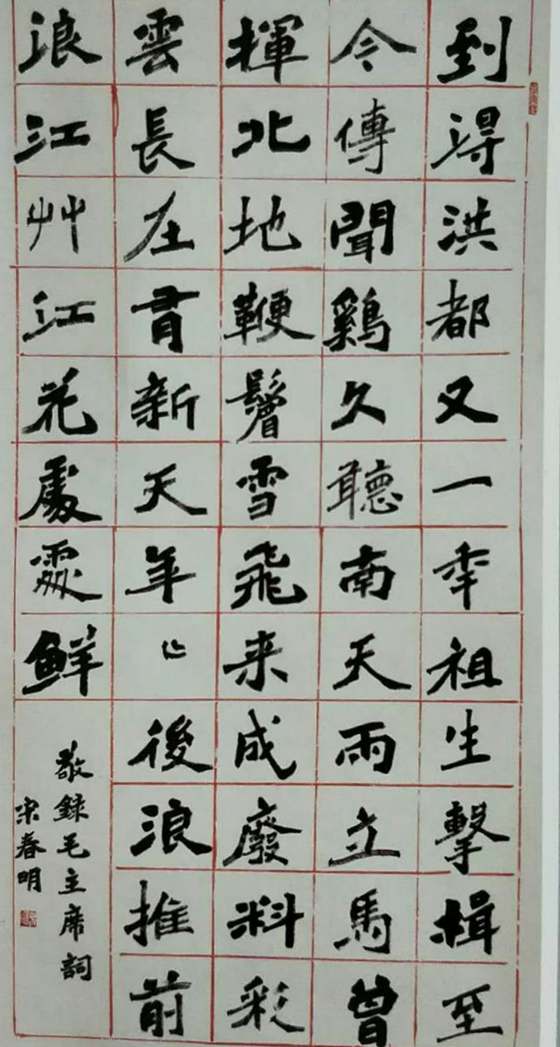 到淂洪都又一秊祖生擊楫至
今傳聞鷄久聽南天雨立馬曾
揮北地鞭鬢雪飛来成廢料彩
雲長在有新天年〻後浪推前
浪江艸江花處處鮮
敬錄毛主席詞
宋春明